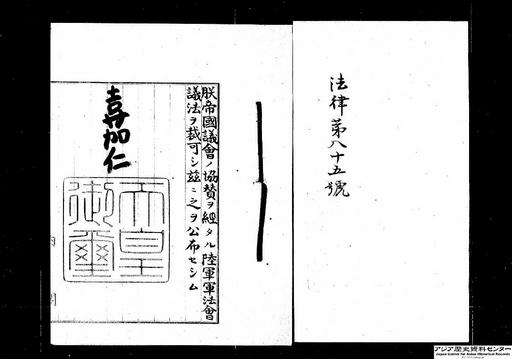 法律第八十五號
朕帝國議會ノ協賛ヲ經タル陸軍軍法會
議法ヲ裁可シ茲ニ之ヲ公布セシム
嘉仁
天皇
御璽
アジア歴史資料センター
Japan Center for Asian Historical Records